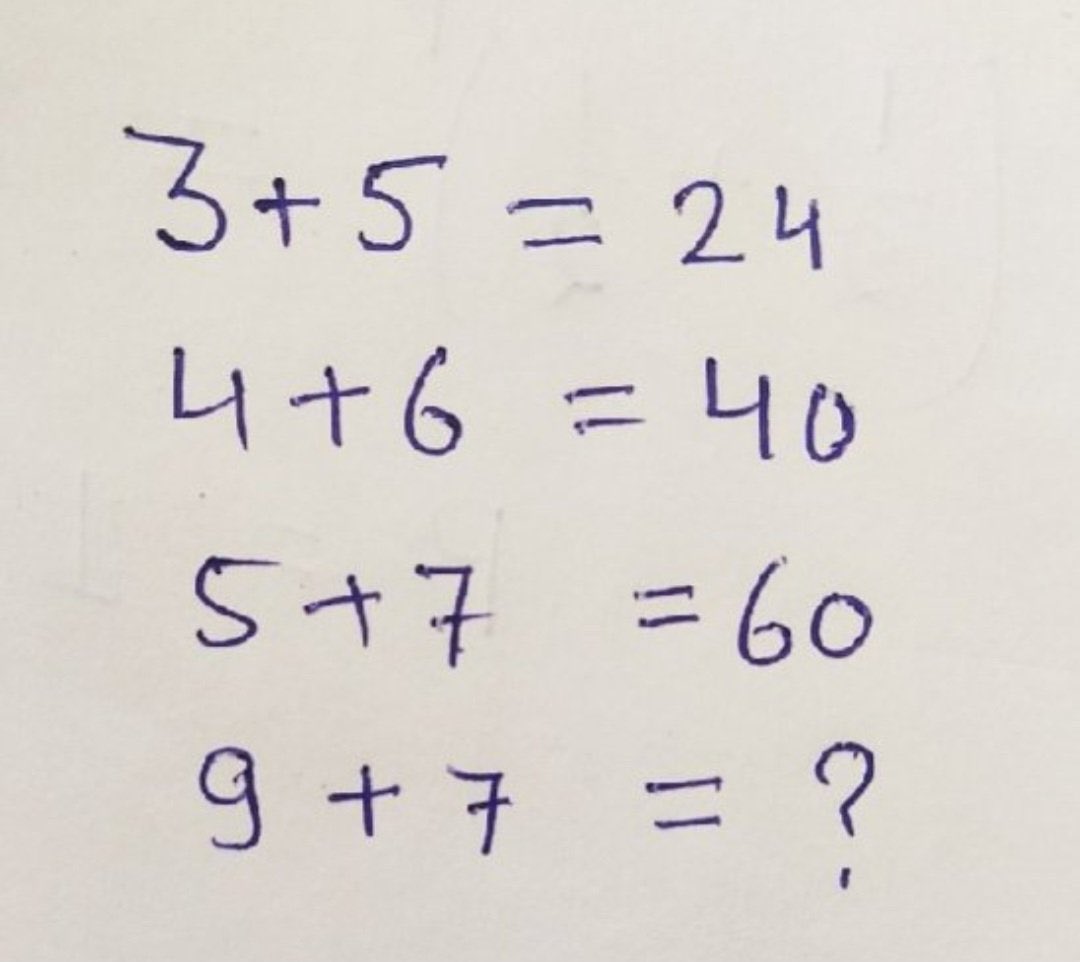 3+5 = 24
4+6 = 40
5+7 = 60
9+7 = ?